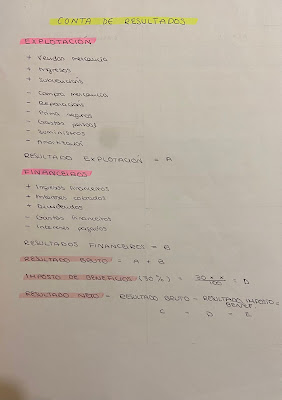 CONTA DE RESULTADOS
EXPLOTACIÓN
+ Vendas mercancía
+ Ingresos
+ Subvencións
- Compra mercancía
- Reparacións
- Prima seguros
- Gastos persoal
- Suministros
- Amortización
RESULTADO EXPLOTACIÓN = A
FINANCEIROS
+ Ingresos financeiros
+ Intereses cobrados
+ Dividendos
- Gastos financeiros
- Intereses pagados
RESULTADOS FINANCEIROS = B
RESULTADO BRUTO = A + B
IMPOSTO DE BENEFICIOS (30%) = 30 x x / 100 = D
RESULTADO NETO = RESULTADO BRUTO - RESULTADO IMPOSTO =
BENEF
C - D = E